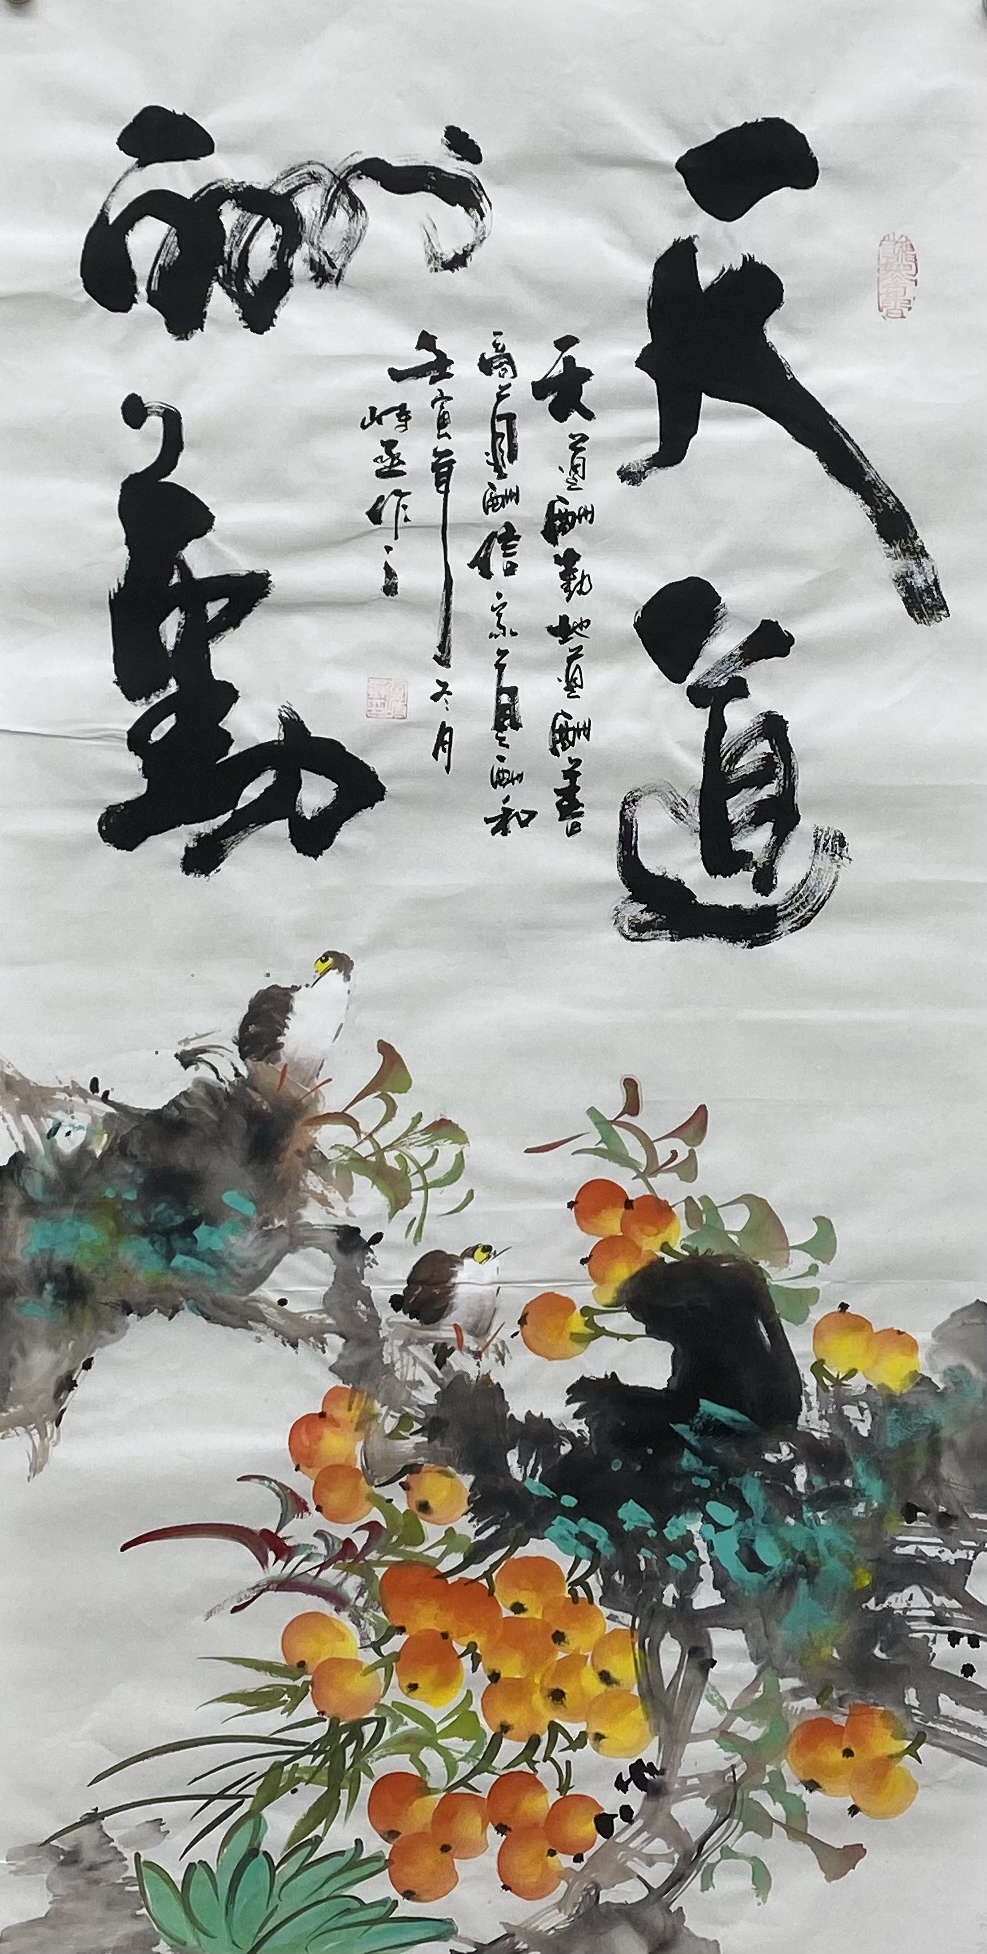 天道
酬勤
天道酬勤地道酬善
商道酬信京道酬和
壬寅年冬月
峙丞作之